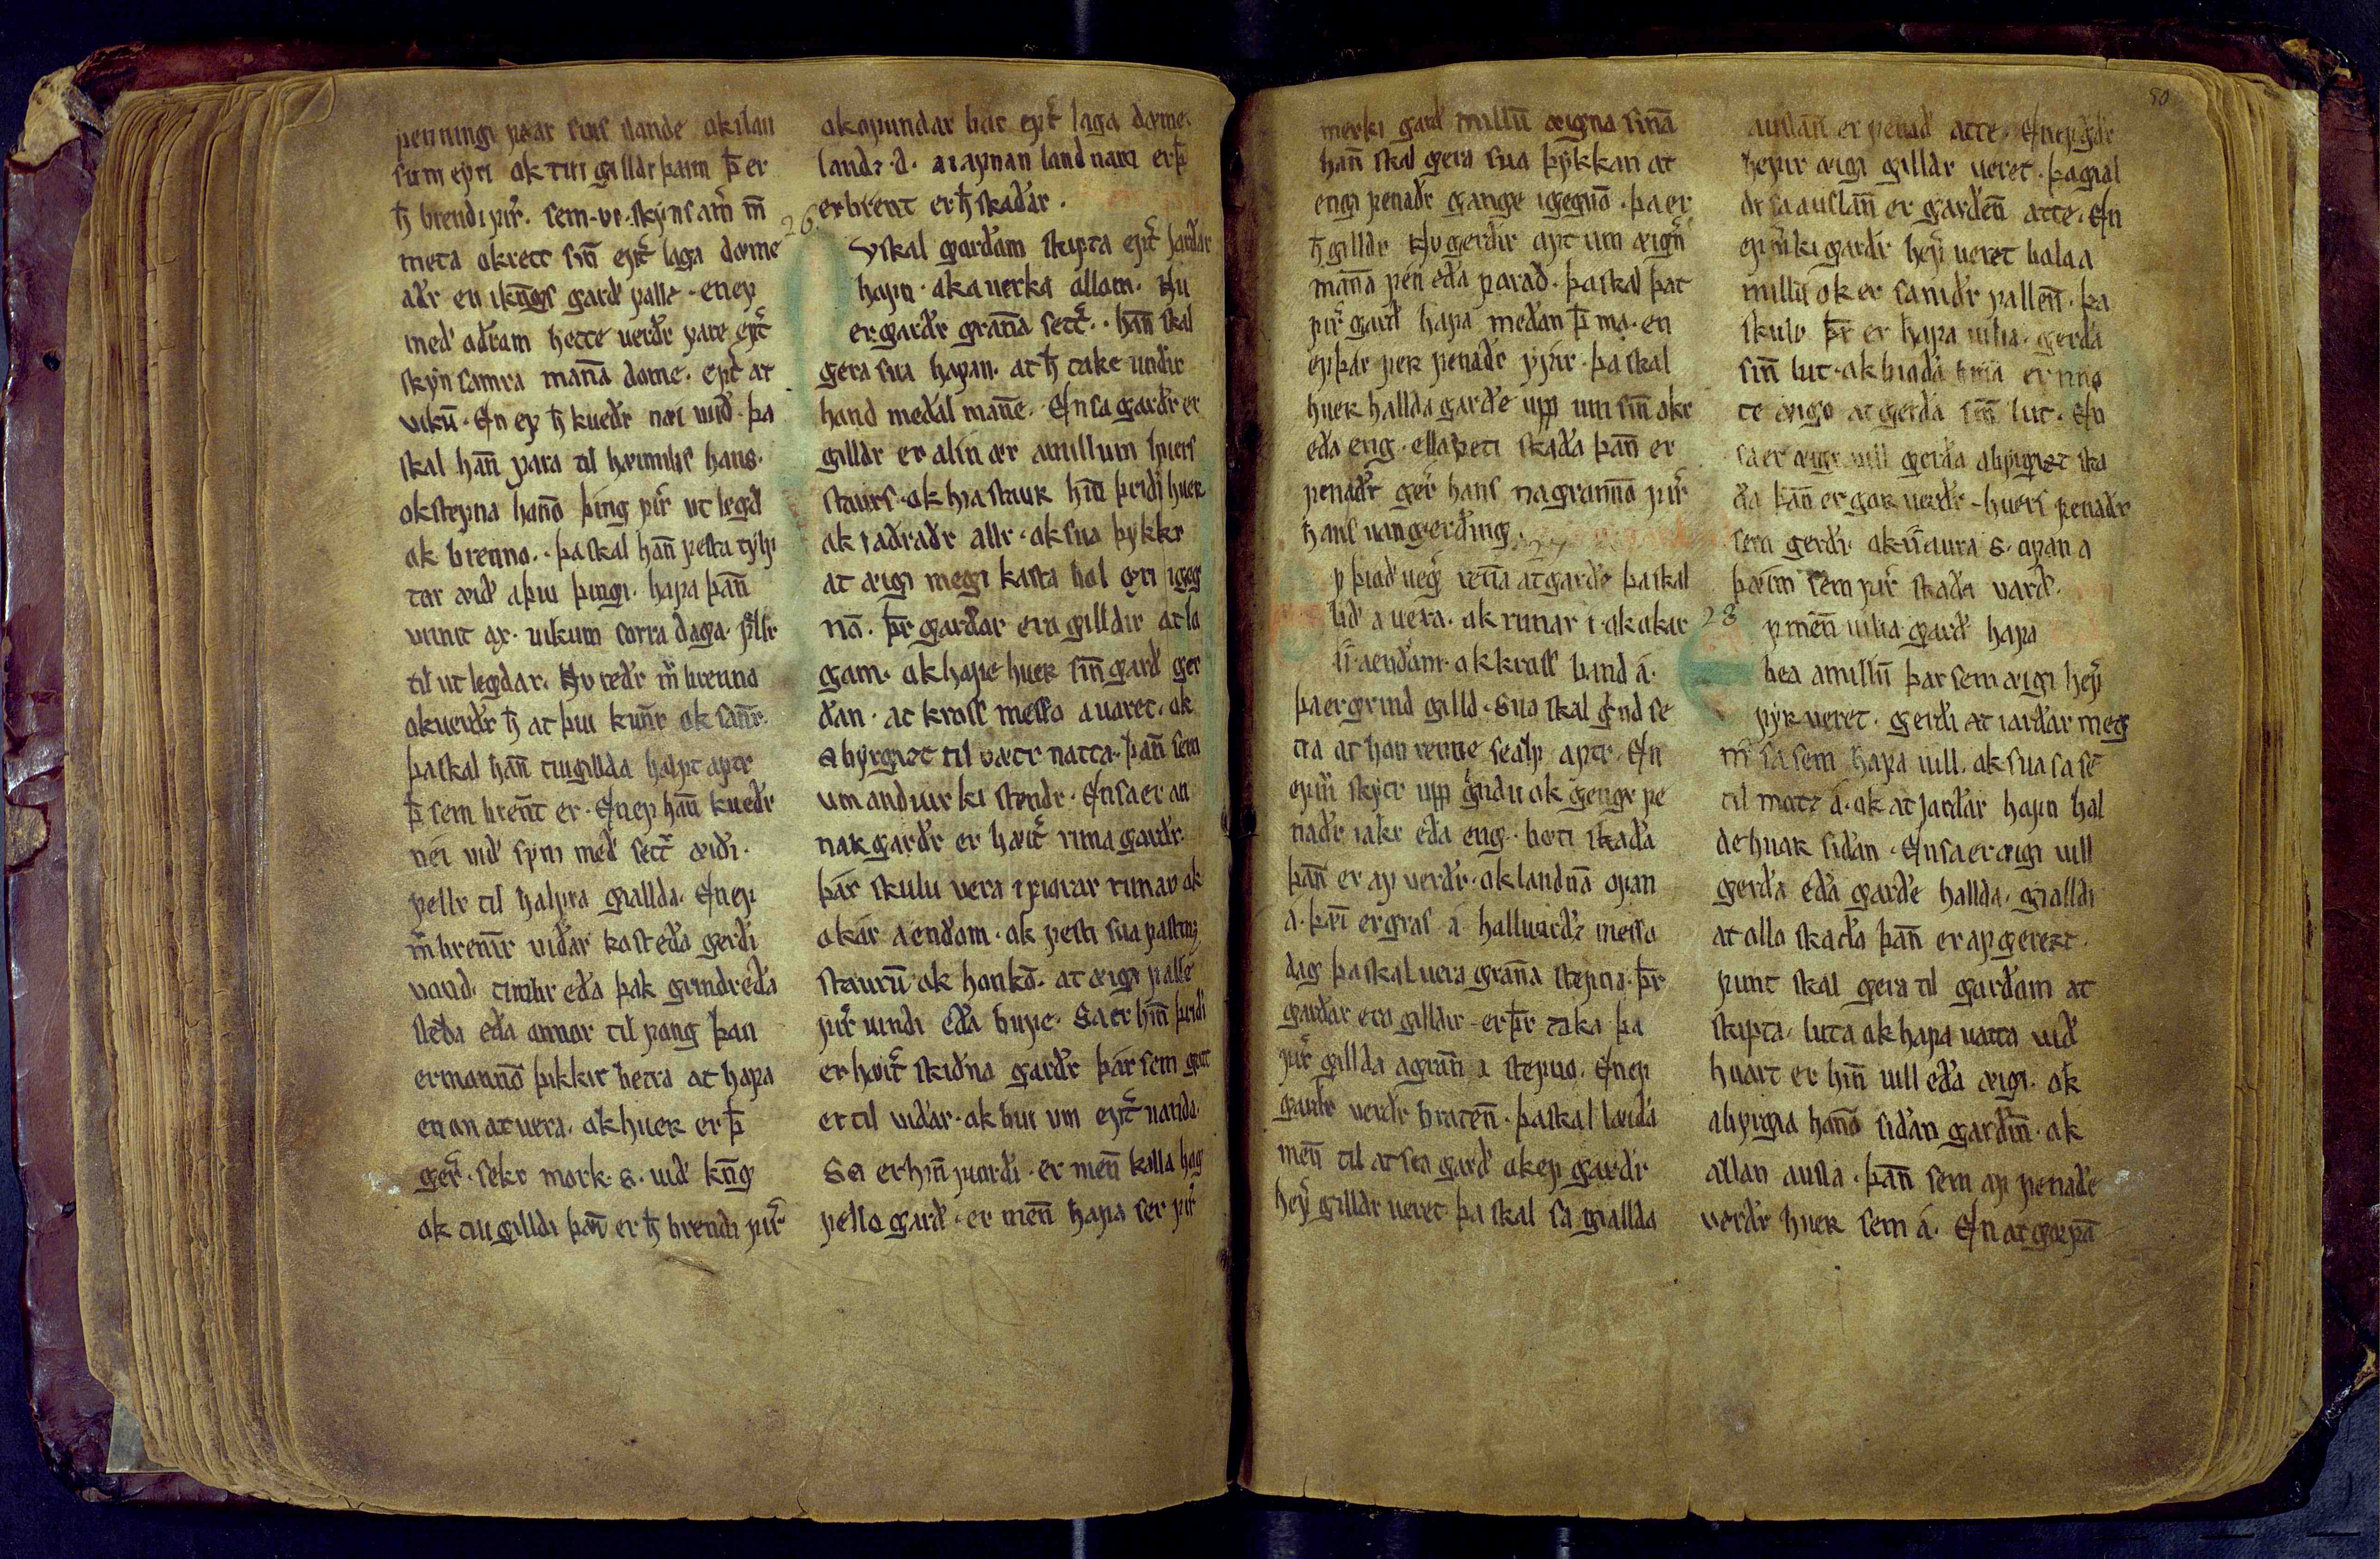 penningi  ok ilan
ok tui gilldi þaim þ̄ er
ħ brendi ꝼir̃. sem .vi. skynsam̃ m̄
meta ok rett sin̄ ept̃ laga dome
aðr en i kn̄gs garð ꝼalle. en eꝼ
með aðrum hette uerðr ꝼare ept̃
skynsamra man̄a dome. ept̃ at
uikū. En eꝼ ħ kueðr næi uið. þa
skal han̄ ꝼara til hæimilis hans.
ok steꝼna hano þing ꝼir̃ ut legd
ok brenno. þa skal han̄ ꝼesta tylꝼ
tar æið a þui þingi. haꝼa þan̄
unnit  uikum ꝼorra daga. ꝼellr
til ut legdar. Nv reðr m̃ brenna
ok uerðr ħ at þui kun̄r ok san̄r.
þa skal han̄ tuigillda halꝼt aptr
þ̄ sem bren̄t er. En eꝼ han̄ kueðr
nei uið syni með sett̃ æiði.
ꝼellr til halꝼra gialda. En eꝼ
m̃ brenir uiðar kost eða gerdi
uond. timbr eða þak grindr eða
sleða eða annor til ꝼong þau
er monno þikkir betra at haꝼa
en on at uera. ok huer er þ̄
ger̃. sekr mork .s. uið kn̄g
ok tuigilldi þān er ħ brendi ꝼir̃
ok oꝼundar bot ept̃ laga dome.
landz .d. a iaꝼnan land nam er þ̄
er brent er ħ skaðar.
26
Nv skal gorðam skipta ept̃ iarðar
hoꝼn. ok a uerka ollom. Nu
er garðr gran̄a sett̃. han̄ skal
gera sua haꝼan. at ħ take undir
hand meðal manne. En sa garðr er
gilldr er alin ær a millum huers
staurs. ok hia staur hin̄ þriði huer
ok raðraðr allr. ok sua þykkr
at æigi megi kasta hol ꝍri igeg
nā. þr̃ garðar ero gilldir at lo
gam. ok haꝼe huer sin̄ garð ger
ðan. at kross messo a uaret. ok
abyrgizt til vætr natta. þan̄ sem
um anduirki stendr. En sa er an
nar garðr er hæit̃ rima garðr.
þar skulu vera i ꝼiorar rimar ok
okar a endom. ok ꝼesti sua ꝼasting
staurū ok honkō. at æigi ꝼalle
ꝼir̃ uindi eða buꝼe. Sa er hin̄ þriði
er hæit̃ skiðna garðr þar sem gott
er til uidar. ok bui vm ept̃ uanda.
Sa er hin̄ ꝼiordi. er men̄ kalla hag
ꝼello garð. er men̄ haꝼa ser ꝼir̃
50
merki garð millū æigna sinā
han̄ skal gera sua þykkan at
engi ꝼenaðr gange igegnō. þa er
ħ gilldr Nv gerdir apt um æign̄
man̄a ꝼen eða ꝼorað. þa skal þat
ꝼir̃ garð haꝼa meðan þ̄ ma. en
eꝼ þar ꝼer ꝼenaðr yꝼir. þa skal
huer hallda garðe upp um sin̄ akr
eða eng. ella beti skaða þan̄ er
ꝼenaðr ger̃ hans nagrannō ꝼir̃
hans uangerðing.
Eꝼ þioð ueg̃ ren̄a at garðe þa skal
hlið a vera. ok rimar i. ok okar
ii. a endam. ok kross band á.
þa er grind gilld. Sua skal gͥnd se
tia at hon renne sealꝼ aptr. En
eꝼ m̃ skytr upp gͥndu ok genge ꝼe
naðr i akr eða eng. beti skaða
þan̄ er aꝼ uerðr. ok landnā oꝼan
á. þæī er gras á halluardz messo
dag þa skal uera gran̄a steꝼna. þr̃
garðar ero gilldir er þr̃ taka þa
ꝼir̃ gillda a gran̄a steꝼno. En eꝼ
garðr verðr broten̄. þa skal læiða
men̄ til at sea garð ok eꝼ garðr
heꝼ̃ gilldr ueret þa skal sa gialda
 er ꝼenað atte. En eꝼ gðr
heꝼir æigi gilldr ueret. þa gial
dr sa auslan̄ er garðen̄ atte. En
eꝼ m̃ki garðr heꝼ̃ ueret holaa
millū ok er san̄ðr ꝼallen̄. þa
skulo þr̃ er haꝼa uilia. gerða
sin̄ lut. ok bioða hinū er 
te æigo at gerða sin̄ lut. En
sa er æigi uill gerða abyrgizt ska
ða þān er gor uerðr. huers ꝼenaðr
sem gerdi. ok ii aura .s. oꝼan a
þæim sem ꝼir̃ skaða varð.
28
Eꝼ men̄ uilia garð haꝼa
bea a millū þar sem æigi heꝼ̃
ꝼyr ueret. gerdi at iarðar meg
m̄ sa sem haꝼa uill. ok sua sa se
til motz á. ok at jarðar hoꝼn hal
de huar siðan. En sa er æigi uill
gerða eða garðe hallda. gialldi
at ollo skaða þan̄ er aꝼ gerezt.
punt skal gera til gardom at
skipta. luta ok haꝼa uatta uid
huart er hin̄ uill eða æigi. ok
abyrgia hanō siðan garðin̄. ok
allan ausla. þan̄ sem aꝼ ꝼenaðe
verðr huer sem á. En at gæꝼa